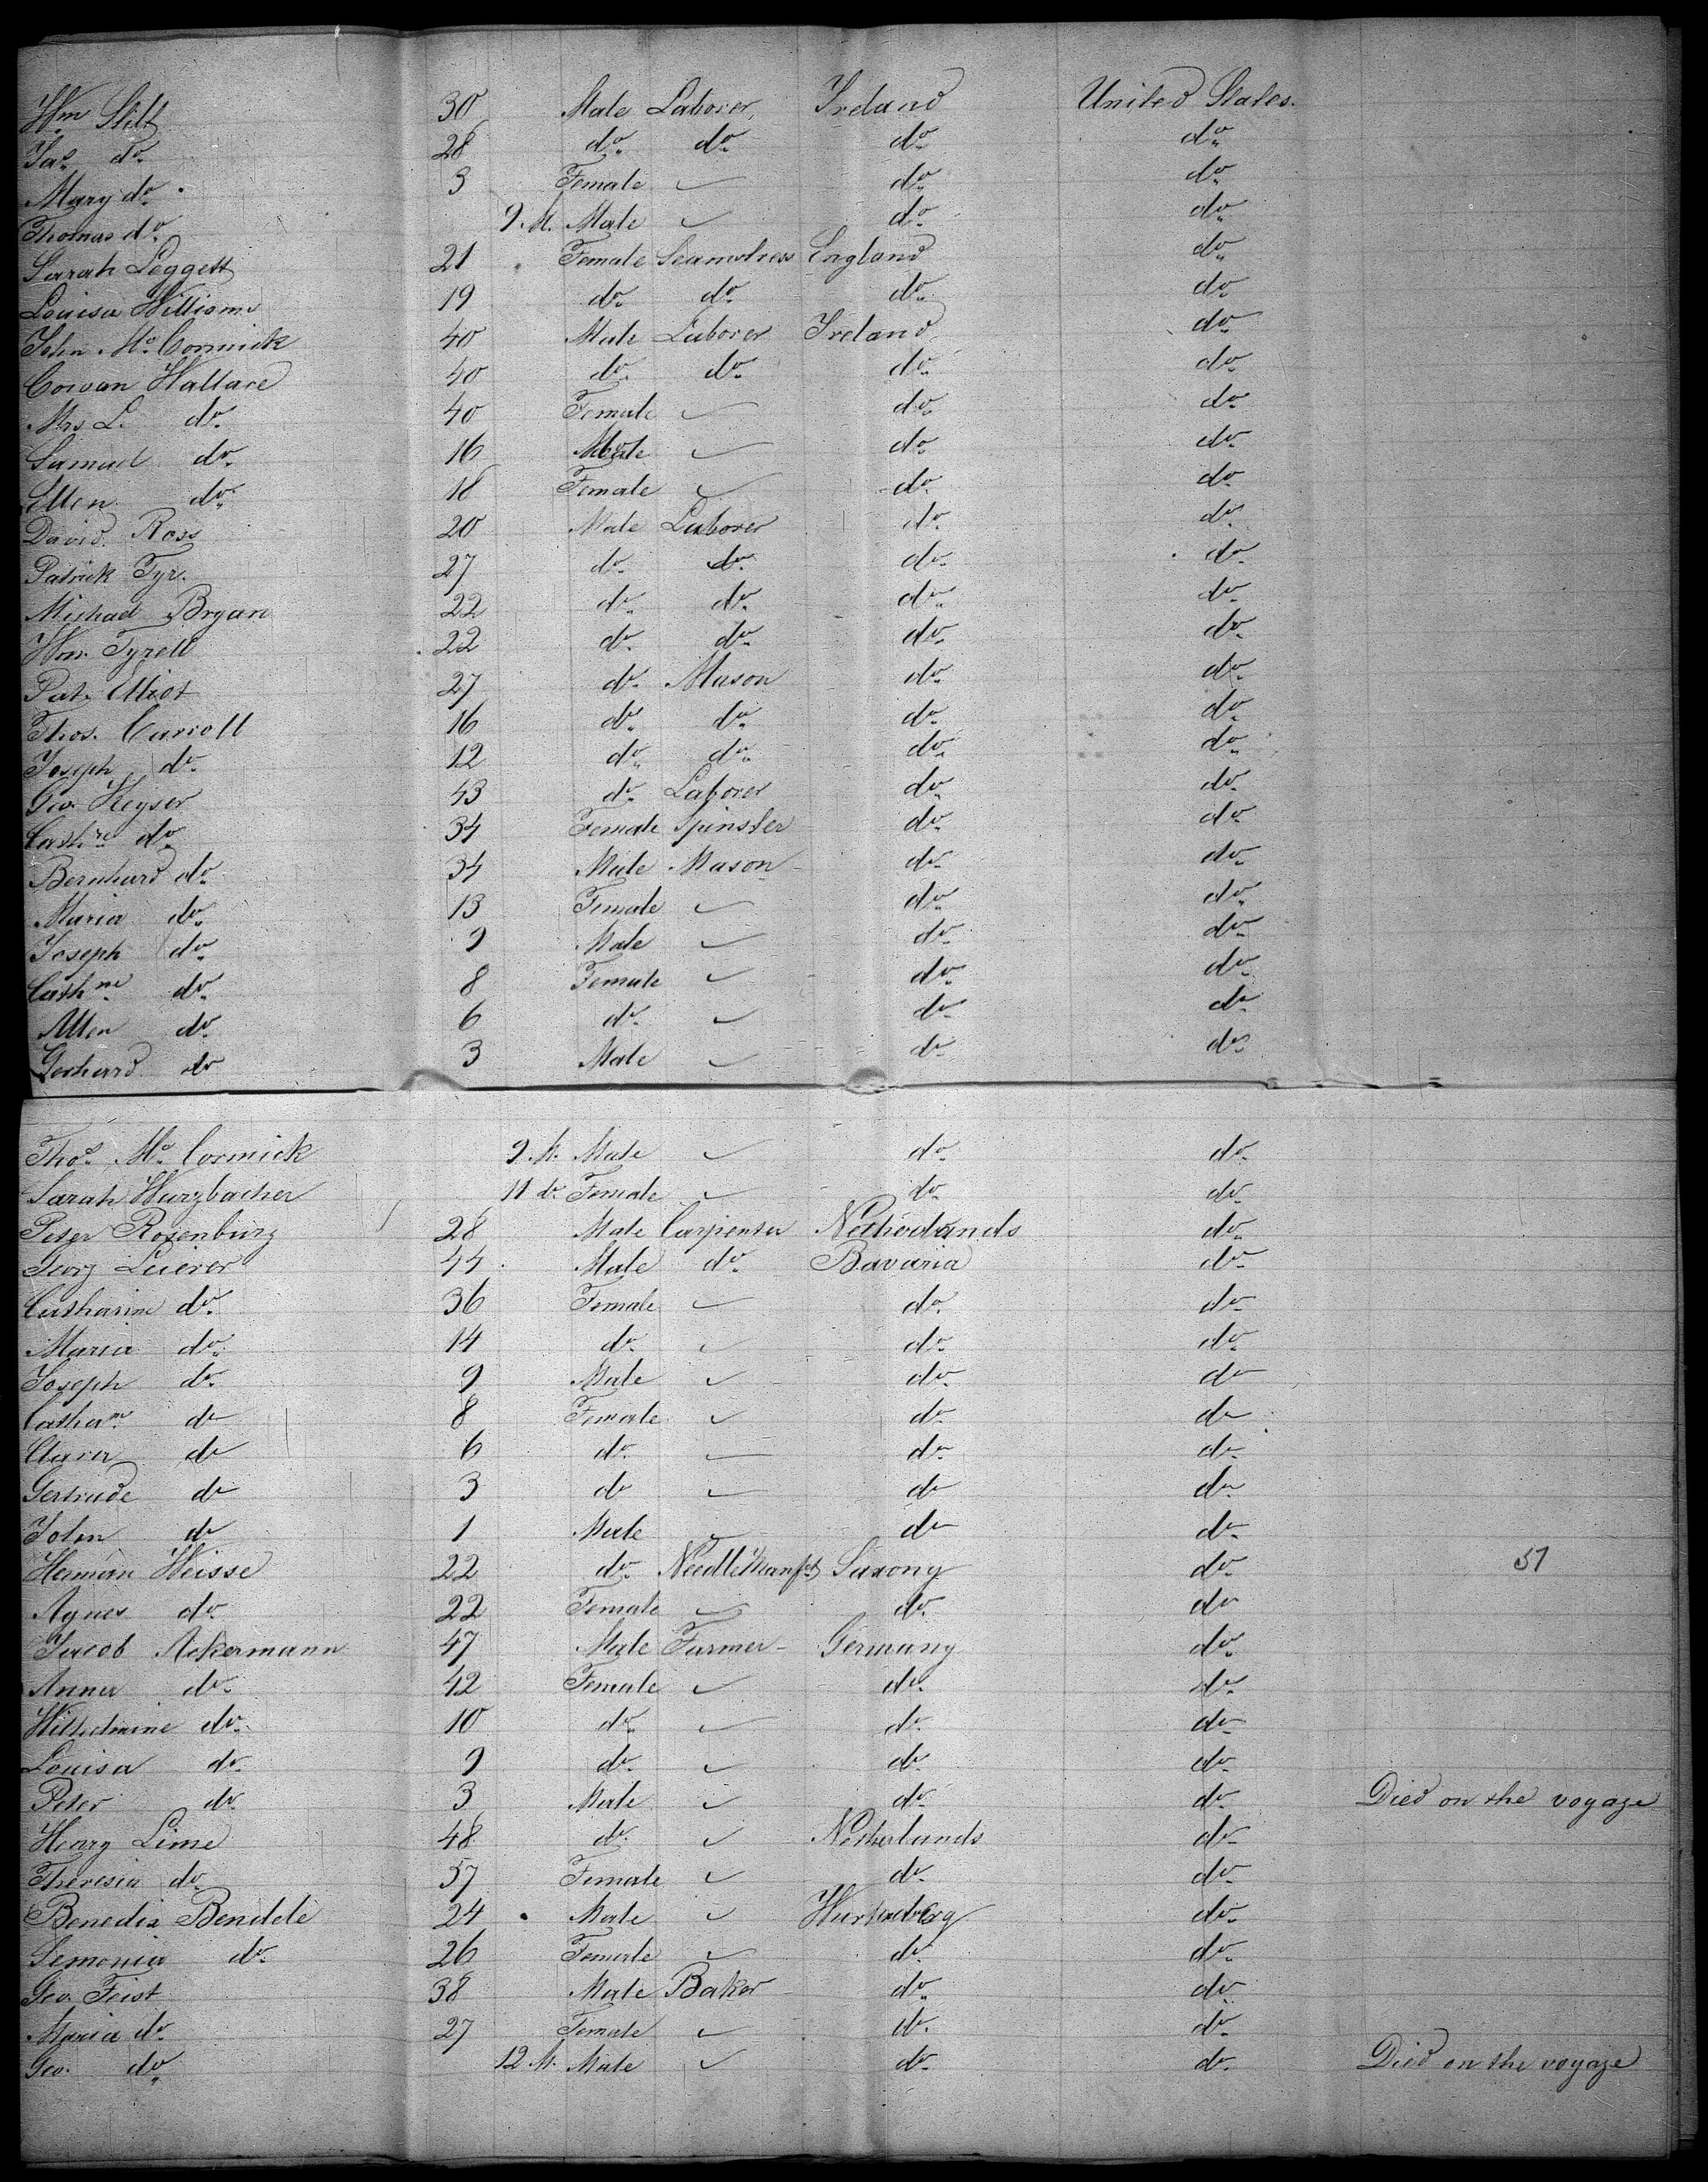 Wm Stitt 30 Male Laborer Ireland United States.
Jas do 28 do do do do
Mary do 3 Female ✓ do do
Thomas do 9.M. Male ✓ do do
Sarah Leggett 21 Female Seamstress England do
Louisa Williams 19 do do do do
John Mc Cormick 40 Male Laborer Ireland do
Cowan Wallace 40 do do do do
Mrs L. do 40 Female ✓ do do
Samuel do 16 Male ✓ do do
Ellen do 18 Female ✓ do do
David Ross 20 Male Laborer do do
Patrick Tyr. 27 do do do do
Michael Bryan 22 do do do do
Wm. Tyrell 22 do do do do
Pat. Elliot 27 do Mason do do
Thos. Carroll 16 do do do do
Joseph do 12 do do do do
Geo. Keyser 43 do Laborer do do
Cathne do 34 Female Spinster do do
Bernhard do 34 Male Mason do do
Maria do 13 Female ✓ do do
Joseph do 9 Male ✓ do do
Cathne do 8 Female ✓ do do
Allen do 6 do ✓ do do
Gerhard do 3 Male ✓ do do
Thos Mc Cormick 9.M. Male ✓ do do
Sarah Wurzbacher 11 do Female ✓ do do
Peter Rosenburg 28 Male Carpenter Netherlands do
Georg Leierer 44 Male do Bavaria do
Catharine do 36 Female ✓ do do
Maria do 14 do ✓ do do
Joseph do 9 Male ✓ do do
Catharne do 8 Female ✓ do do
Clara do 6 do ✓ do do
Gertrude do 3 do ✓ do do
John do 1 Male ✓ do do
Herman Weisse 22 do Needle Manfr Saxony do 51
Agnes do 22 Female ✓ do do
Jacob Ackermann 47 Male Farmer Germany do
Anna do 42 Female ✓ do do
Wilhelmine do 10 do ✓ do do
Louisa do 9 do ✓ do do
Peter do 3 Male ✓ do do Died on the voyage
Henry Lime 48 do ✓ Netherlands do
Theresia do 57 Female ✓ do do
Benedix Bendele 24 Male ✓ Wurtemberg do
Semonia do 26 Female ✓ do do
Geo. Feist 38 Male Baker do do
Maria do 27 Female ✓ do do
Geo. do 12.M. Male ✓ do do Died on the voyage